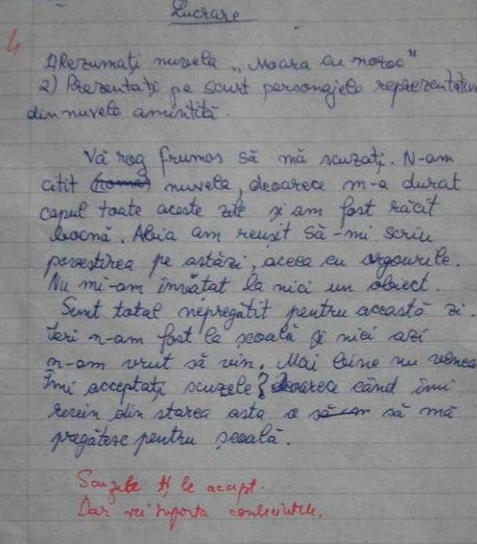 Lucrare
4
1) Rezumați nuvela „Moara cu noroc"
2) Prezentați pe scurt personajele reprezentative
din nuvela amintită.
Vă rog frumos să mă scuzați. N-am
citit nuvela, deoarece m-a durat
capul toate aceste zile și am fost răcit
bocnă. Abia am reușit să-mi scriu
povestirea pe astăzi, aceea cu
Nu mi-am învățat la nici un obiect.
Sunt total nepregătit pentru această zi.
Ieri n-am fost la școală și nici azi
n-am vrut să vin. Mai bine nu veneam
Îmi acceptați scuzele? deoarece când îmi
revin din starea asta o să mă
pregătesc pentru școală.
Scuzele ți le accept.
Dar vei suporta consecințele.